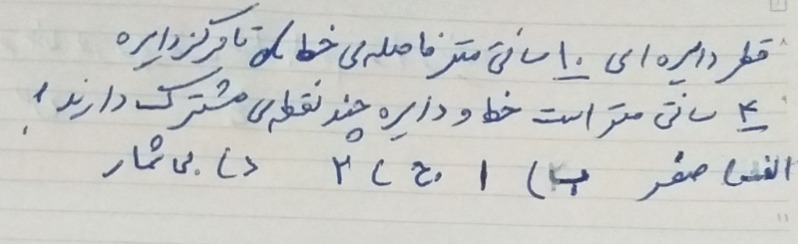 قطر دایره ای ۱۰ سانتی متر فاصله ی خط d تا مرکز دایره
۴ سانتی متر است خط و دایره چند نقطه ی مشترک دارند؟
الف) صفر ب) ۱ ج) ۲ د) بی شمار